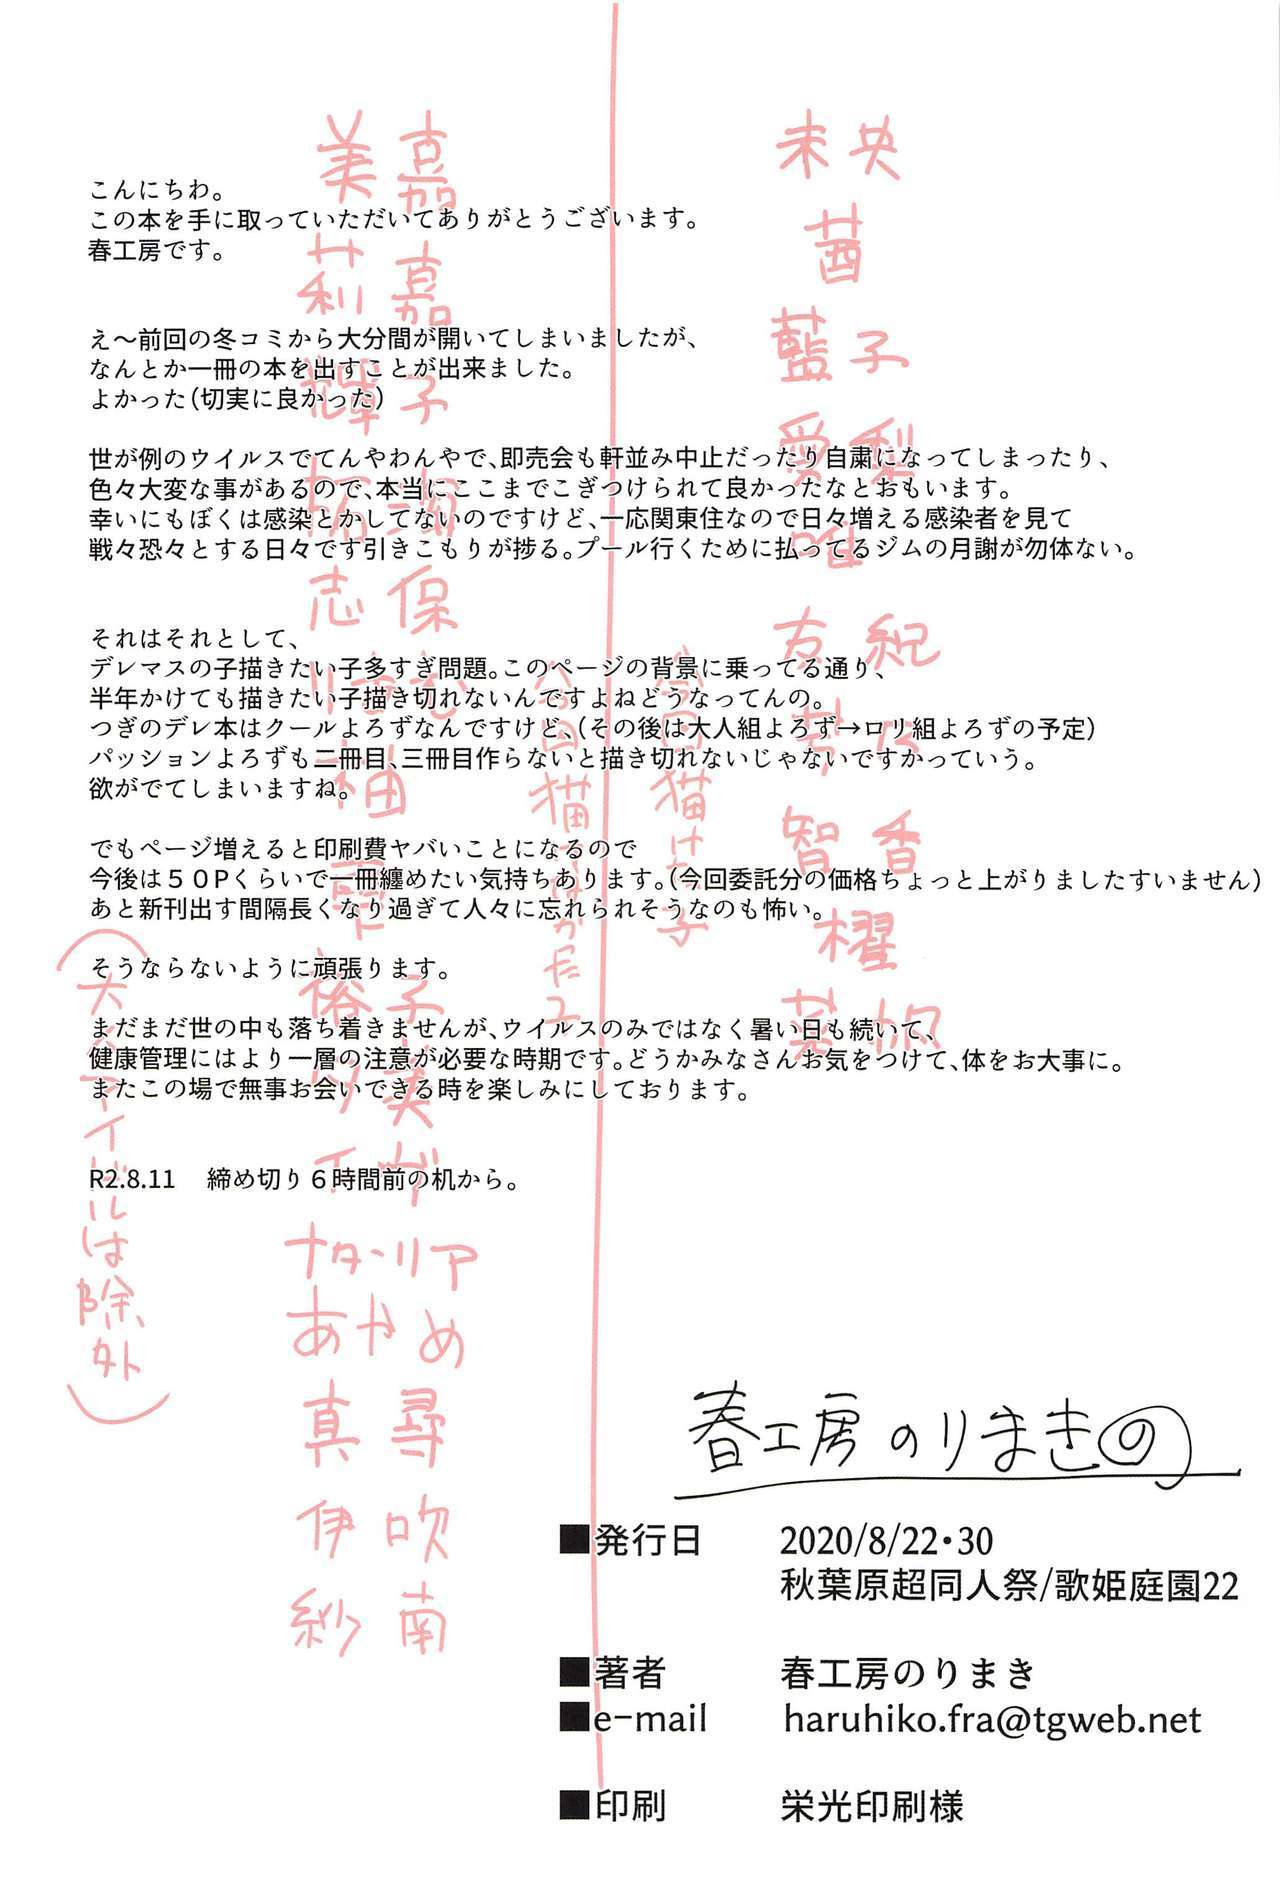 こんにちわ。
この本を手に取っていただいてありがとうございます。
春工房です。
え～前回の冬コミから大分間が開いてしまいましたが、
なんとか一冊の本を出すことが出来ました。
よかった（切実に良かった）
世が例のウイルスでてんやわんやで、即売会も軒並み中止だったり自粛になってしまったり、
色々大変な事があるので、本当にここまでこぎつけられて良かったなとおもいます。
幸いにもぼくは感染とかしてないのですけど、一応関東住なので日々増える感染者を見て
戦々恐々とする日々です引きこもりが捗る。プール行くために払ってるジムの月謝が勿体ない。
それはそれとして、
デレマスの子描きたい子多すぎ問題。このページの背景に乗ってる通り、
半年かけても描きたい子描き切れないんですよねどうなってんの。
つぎのデレ本はクールよろずなんですけど、（その後は大人組よろず→ロリ組よろずの予定）
パッションよろずも二冊目、三冊目作らないと描き切れないじゃないですかっていう。
欲がでてしまいますね。
でもページ増えると印刷費ヤバいことになるので
今後は５０Ｐくらいで一冊纏めたい気持ちあります。（今回委託分の価格ちょっと上がりましたすいません）
あと新刊出す間隔長くなり過ぎて人々に忘れられそうなのも怖い。
そうならないように頑張ります。
まだまだ世の中も落ち着きませんが、ウイルスのみではなく暑い日も続いて、
健康管理にはより一層の注意が必要な時期です。どうかみなさんお気をつけて、体をお大事に。
またこの場で無事お会いできる時を楽しみにしております。
R2.8.11　締め切り６時間前の机から。
未央
茜
藍子
愛梨
唯
友紀
智香
櫂
美嘉
莉嘉
輝子
拓海
志保
りあむ
裕子
ナターリア
あやめ
真尋
伊吹
紗南
は除外）
春工房のりまきの
■発行日　2020/8/22・30
秋葉原超同人祭/歌姫庭園22
■著者　春工房のりまき
■e-mail　haruhiko.fra@tgweb.net
■印刷　栄光印刷様